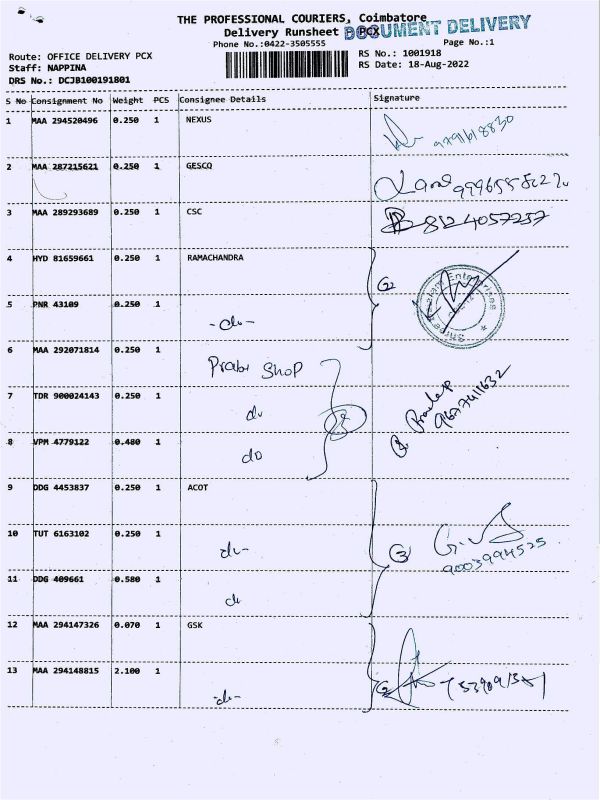 THE PROFESSIONAL COURIERS, Coimbatore
Delivery Runsheet PCX
DOCUMENT DELIVERY
Phone No.:0422-3505555 Page No.:1
Route: OFFICE DELIVERY PCX RS No.: 1001918
Staff: NAPPINA RS Date: 18-Aug-2022
DRS No.: DCJB100191801
S No Consignment No Weight PCS Consignee Details Signature
1 MAA 294520496 0.250 1 NEXUS
9791618830
2 MAA 287215621 0.250 1 GESCO
3 MAA 289293689 0.250 1 CSC
8124057257
4 HYD 81659661 0.250 1 RAMACHANDRA
2
5 PNR 43109 0.250 1
-do-
6 MAA 292071814 0.250 1
Prabu Shop
7 TDR 900024143 0.250 1
do
9677411632
8 VPM 4779122 0.480 1
do
9 DDG 4453837 0.250 1 ACOT
10 TUT 6163102 0.250 1
do-
3
9003994525
11 DDG 409661 0.580 1
do
12 MAA 294147326 0.070 1 GSK
13 MAA 294148815 2.100 1
-do-